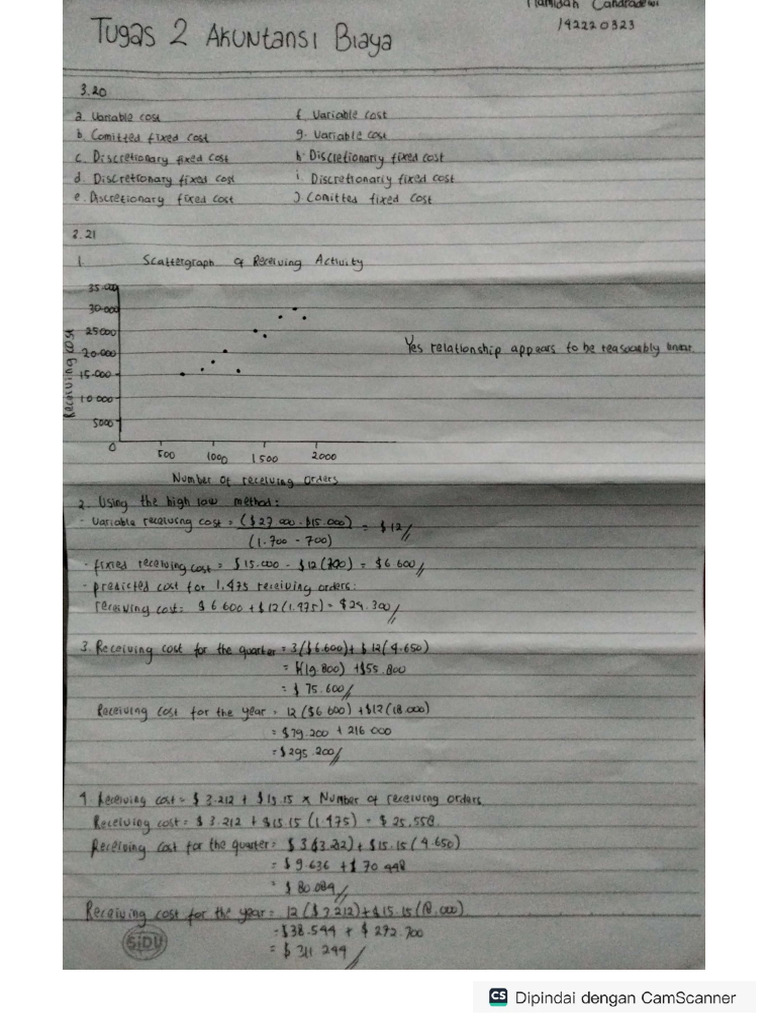 Hamidah Candradewi
142220323
Tugas 2 Akuntansi Biaya
3.20
a. Variable cost
f. Variable cost
b. Comitted fixed cost
g. Variable cost
c. Discretionary fixed cost
h. Discretionary fixed cost
d. Discretionary fixed cost
i. Discretionary fixed cost
e. Discretionary fixed cost
J. Comitted fixed cost
2.21
1. Scattergraph of Receiving Activity
35.000
30.000
25000
20.000
15.000
10 000
5000
0
Receiving cost
500 1000 1500 2000
Number of receiving orders
Yes relationship appears to be reasonably linear.
2. Using the high low method:
- Variable receiving cost = ($27 000 - $15.000) = $12
(1.700 - 700)
- fixed receiving cost = $15.000 - $12 (700) = $6 600
- predicted cost for 1,475 receiving orders:
receiving cost: $6 600 + $12 (1.475) = $24.300
3. Receiving cost for the quarter = 3($6.600) + $12(4.650)
= $(19.800) + $55.800
= $75.600
Receiving cost for the year = 12 ($6 600) + $12 (18.000)
= $79.200 + 216 000
= $295.200
4. Receiving cost = $3.212 + $15.15 x Number of receiving orders
Receiving cost = $3.212 + $15.15 (1.475) = $25,558
Receiving cost for the quarter = $3(3.212) + $15.15 (4.650)
= $9.636 + $70 448
= $80 084
Receiving cost for the year = 12 ($3.212) + $15.15 (18.000)
= $38.544 + $272.700
= $311.244
SiDU
CS Dipindai dengan CamScanner